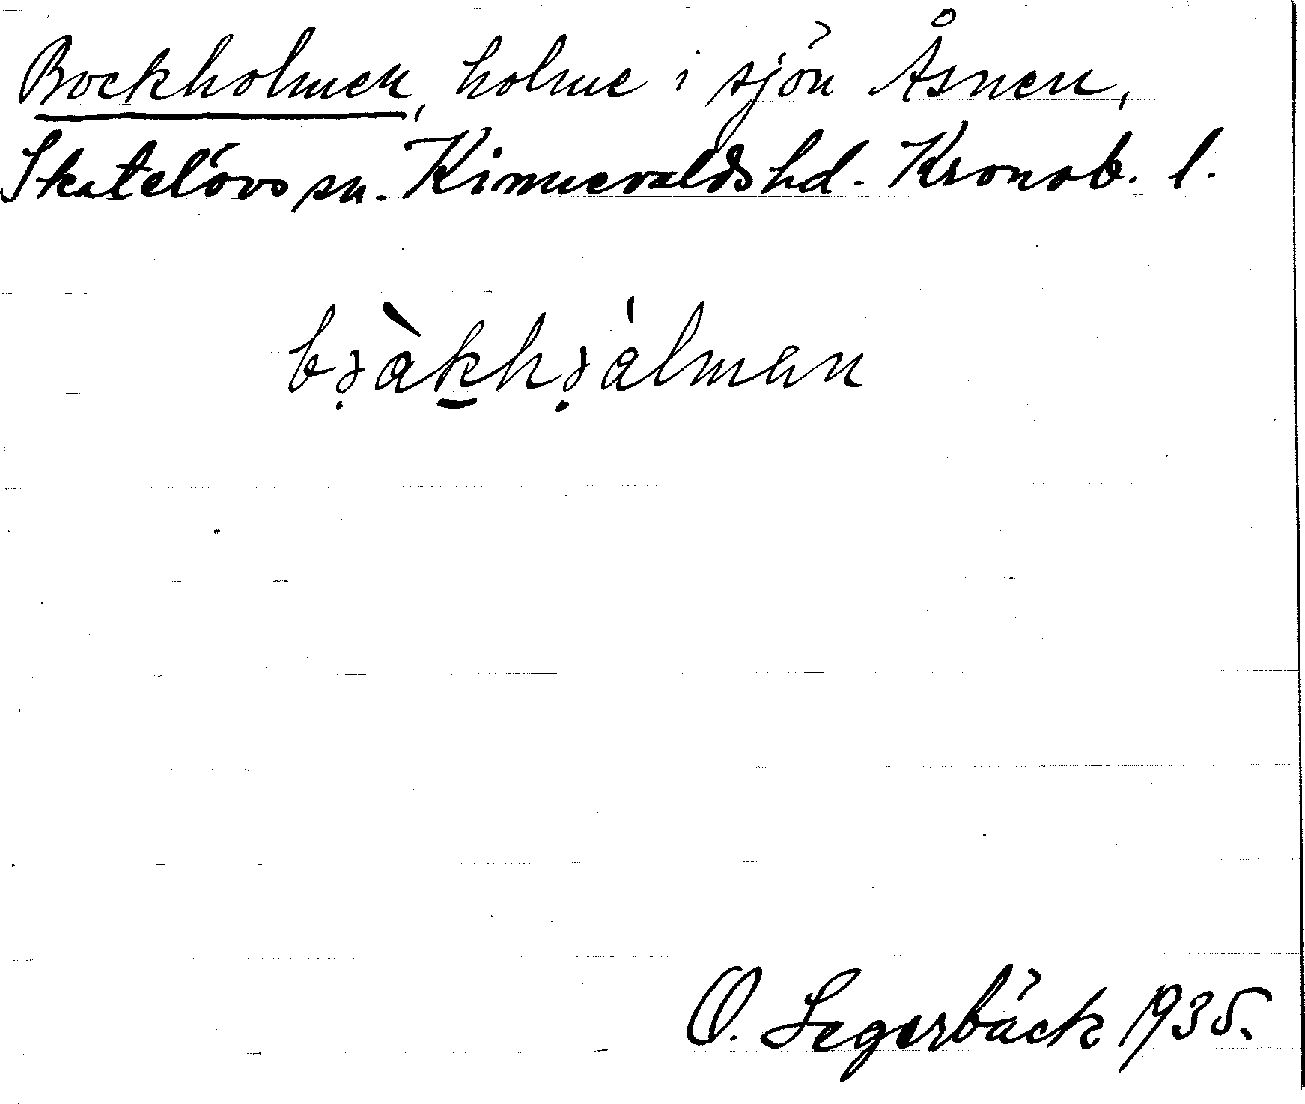 Bockholmen, holme i sjön Åsnen,
Skatelövs sn. Kinnevalds hd. Kronob. l.
bɜ̣àk̲hɜ̣álmən
O. Segerbäck 1935.